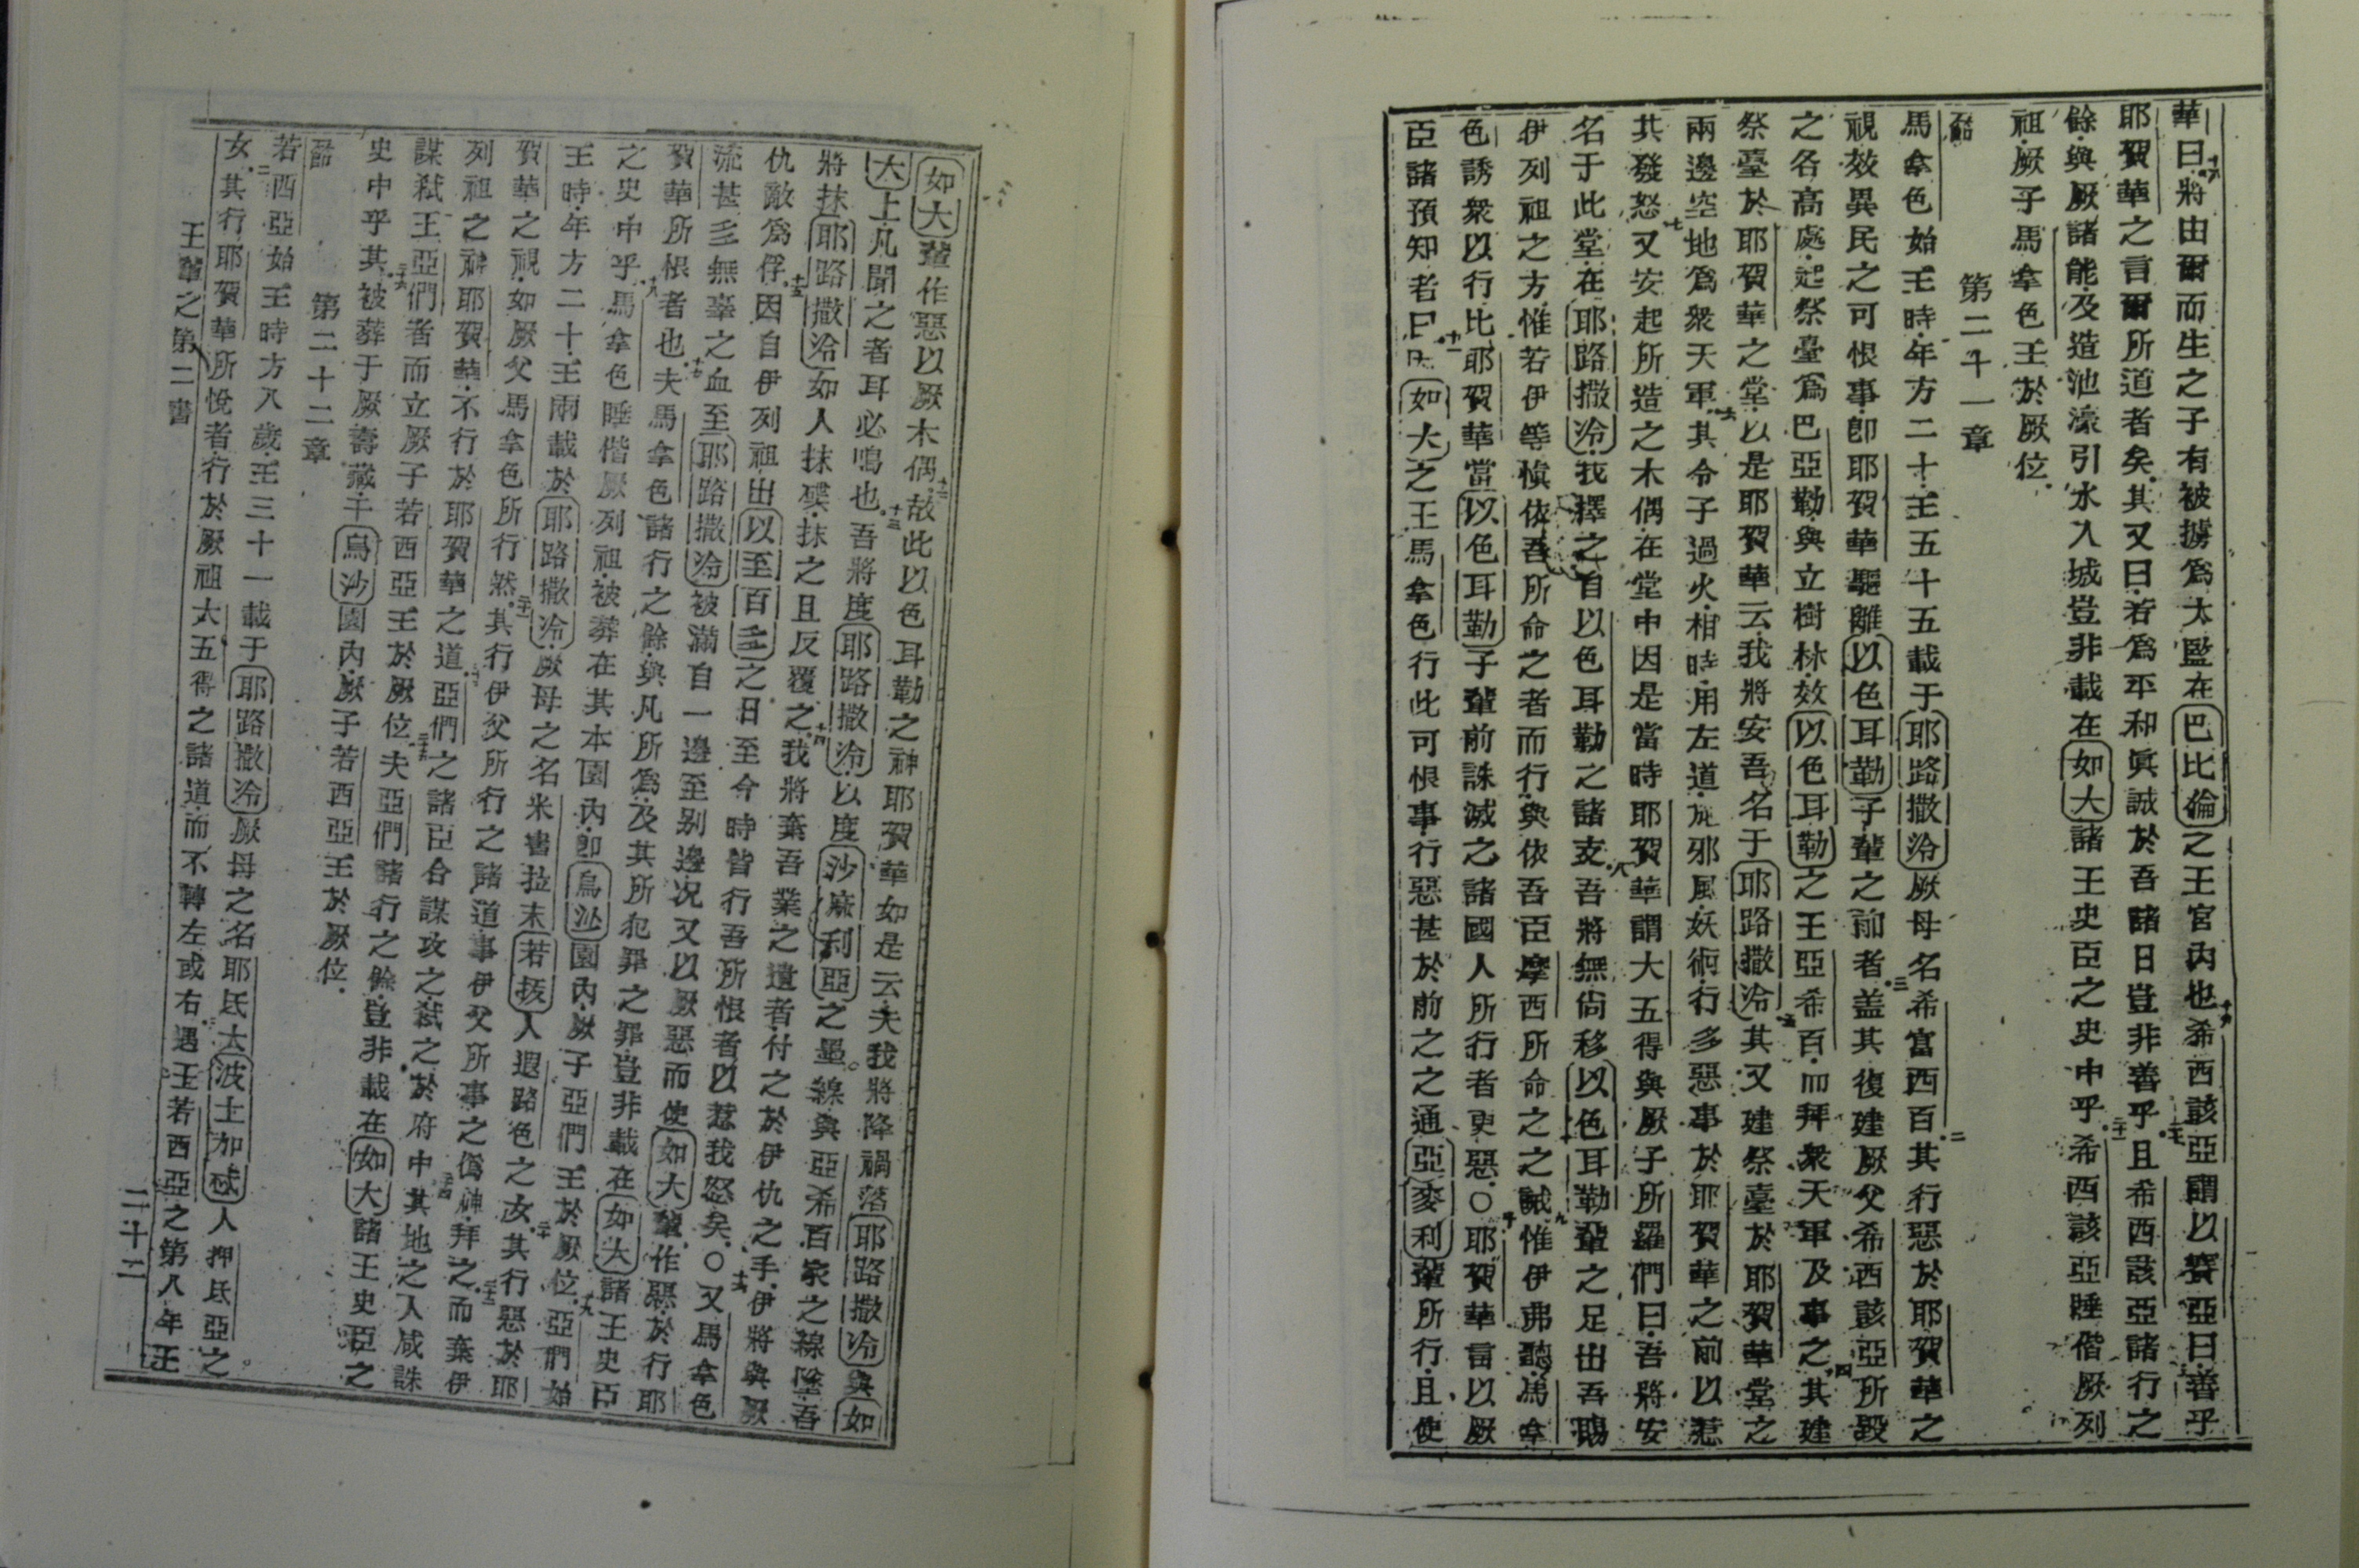 華曰十八將由爾而生之子有被擄爲太監在巴比倫之王宮內也十九希西該亞謂以賽亞曰善乎
耶賀華之言爾所道者矣其又曰若爲平和眞誠於吾諸日豈非善乎二十且希西該亞諸行之
餘與厥諸能及造池濠引水入城豈非載在如大諸王史臣之史中乎二十一希西該亞睡偕厥列
祖厥子馬拿色王於厥位
第二十一章
馬拿色始王時年方二十王五十五載于耶路撒冷厥母名希富西百二其行惡於耶賀華之
視效異民之可恨事卽耶賀華驅離以色耳勒子輩之前者三蓋其復建厥父希西該亞所毀
之各高處起祭臺爲巴亞勒與立樹林效以色耳勒之王亞希百而拜衆天軍及事之四其建
祭臺於耶賀華之堂以是耶賀華云我將安吾名于耶路撒冷五其又建祭臺於耶賀華堂之
兩邊空地爲衆天軍六其令子過火相時用左道施邪風妖術行多惡事於耶賀華之前以惹
其發怒七又安起所造之木偶在堂中因是當時耶賀華謂大五得與厥子所羅們曰吾將安
名于此堂在耶路撒冷我擇之自以色耳勒之諸支八吾將無尙移以色耳勒輩之足出吾賜
伊列祖之方惟若伊等愼依吾所命之者而行與依吾臣摩西所命之之誡九惟伊弗聽馬拿
色誘衆以行比耶賀華當以色耳勒子輩前誅滅之諸國人所行者更惡〇十耶賀華言以厥
臣諸預知者曰十一因如大之王馬拿色行此可恨事行惡甚於前之之通亞麥利輩所行且使
如大輩作惡以厥木偶十二故此以色耳勒之神耶賀華如是云夫我將降禍落耶路撒冷與如
大上凡聞之者耳必鳴也十三吾將度耶路撒冷以度沙麻利亞之墨線與亞希百家之線墜吾
將抹耶路撒冷如人抹碟抹之且反覆之十四我將棄吾業之遺者付之於伊仇之手伊將與厥
仇敵爲俘十五因自伊列祖出以至百多之日至今時皆行吾所恨者以惹我怒矣〇十六又馬拿色
流甚多無辜之血至耶路撒冷被滿自一邊至別邊况又以厥惡而使如大輩作惡於行耶
賀華所恨者也十七夫馬拿色諸行之餘與凡所爲及其所犯罪之罪豈非載在如大諸王史臣
之史中乎十八馬拿色睡偕厥列祖被葬在其本園內卽烏沙園內厥子亞們王於厥位十九亞們始
王時年方二十王兩載於耶路撒冷厥母之名米書拉末若拔人遐路色之女二十其行惡於耶
賀華之視如厥父馬拿色所行然二十一其行伊父所行之諸道事伊父所事之僞神拜之二十二而棄伊
列祖之神耶賀華不行於耶賀華之道二十三亞們之諸臣合謀攻之弒之於府中二十四其地之人咸誅
謀弒王亞們者而立厥子若西亞王於厥位二十五夫亞們諸行之餘豈非載在如大諸王史臣之
史中乎二十六其被葬于厥壽藏于烏沙園內厥子若西亞王於厥位
第二十二章
若西亞始王時方八歲王三十一載于耶路撒冷厥母之名耶氐大波士加忒人押氐亞之
女二其行耶賀華所悅者行於厥祖大五得之諸道而不轉左或右三遇王若西亞之第八年王
王輩之第二書
二十二